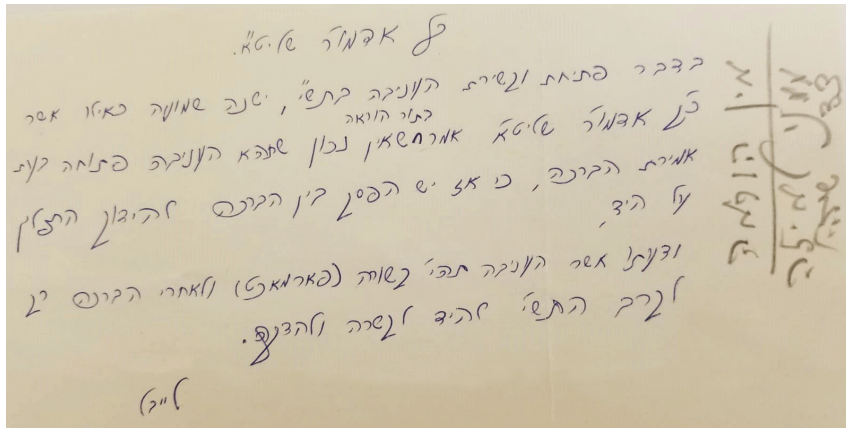 כ"ק אדמו"ר שליט"א.
בדבר פתיחת וקשירת העניבה בתש"י, ישנה שמועה כאילו אשר
כ"ק אדמו"ר שליט"א אמר בתור הוראה שאין נכון שתהא העניבה פתוחה בעת
אמירת הברכה, כי אז יש הפסק בין הברכה להידוק התפלין
על היד,
ודעתי אשר העניבה תהי' קשורה (פארמאכט) ולאחרי הברכה רק
לקרב התש"י להיד לקשרה ולהדקה.
לייבל
אין הוכחה